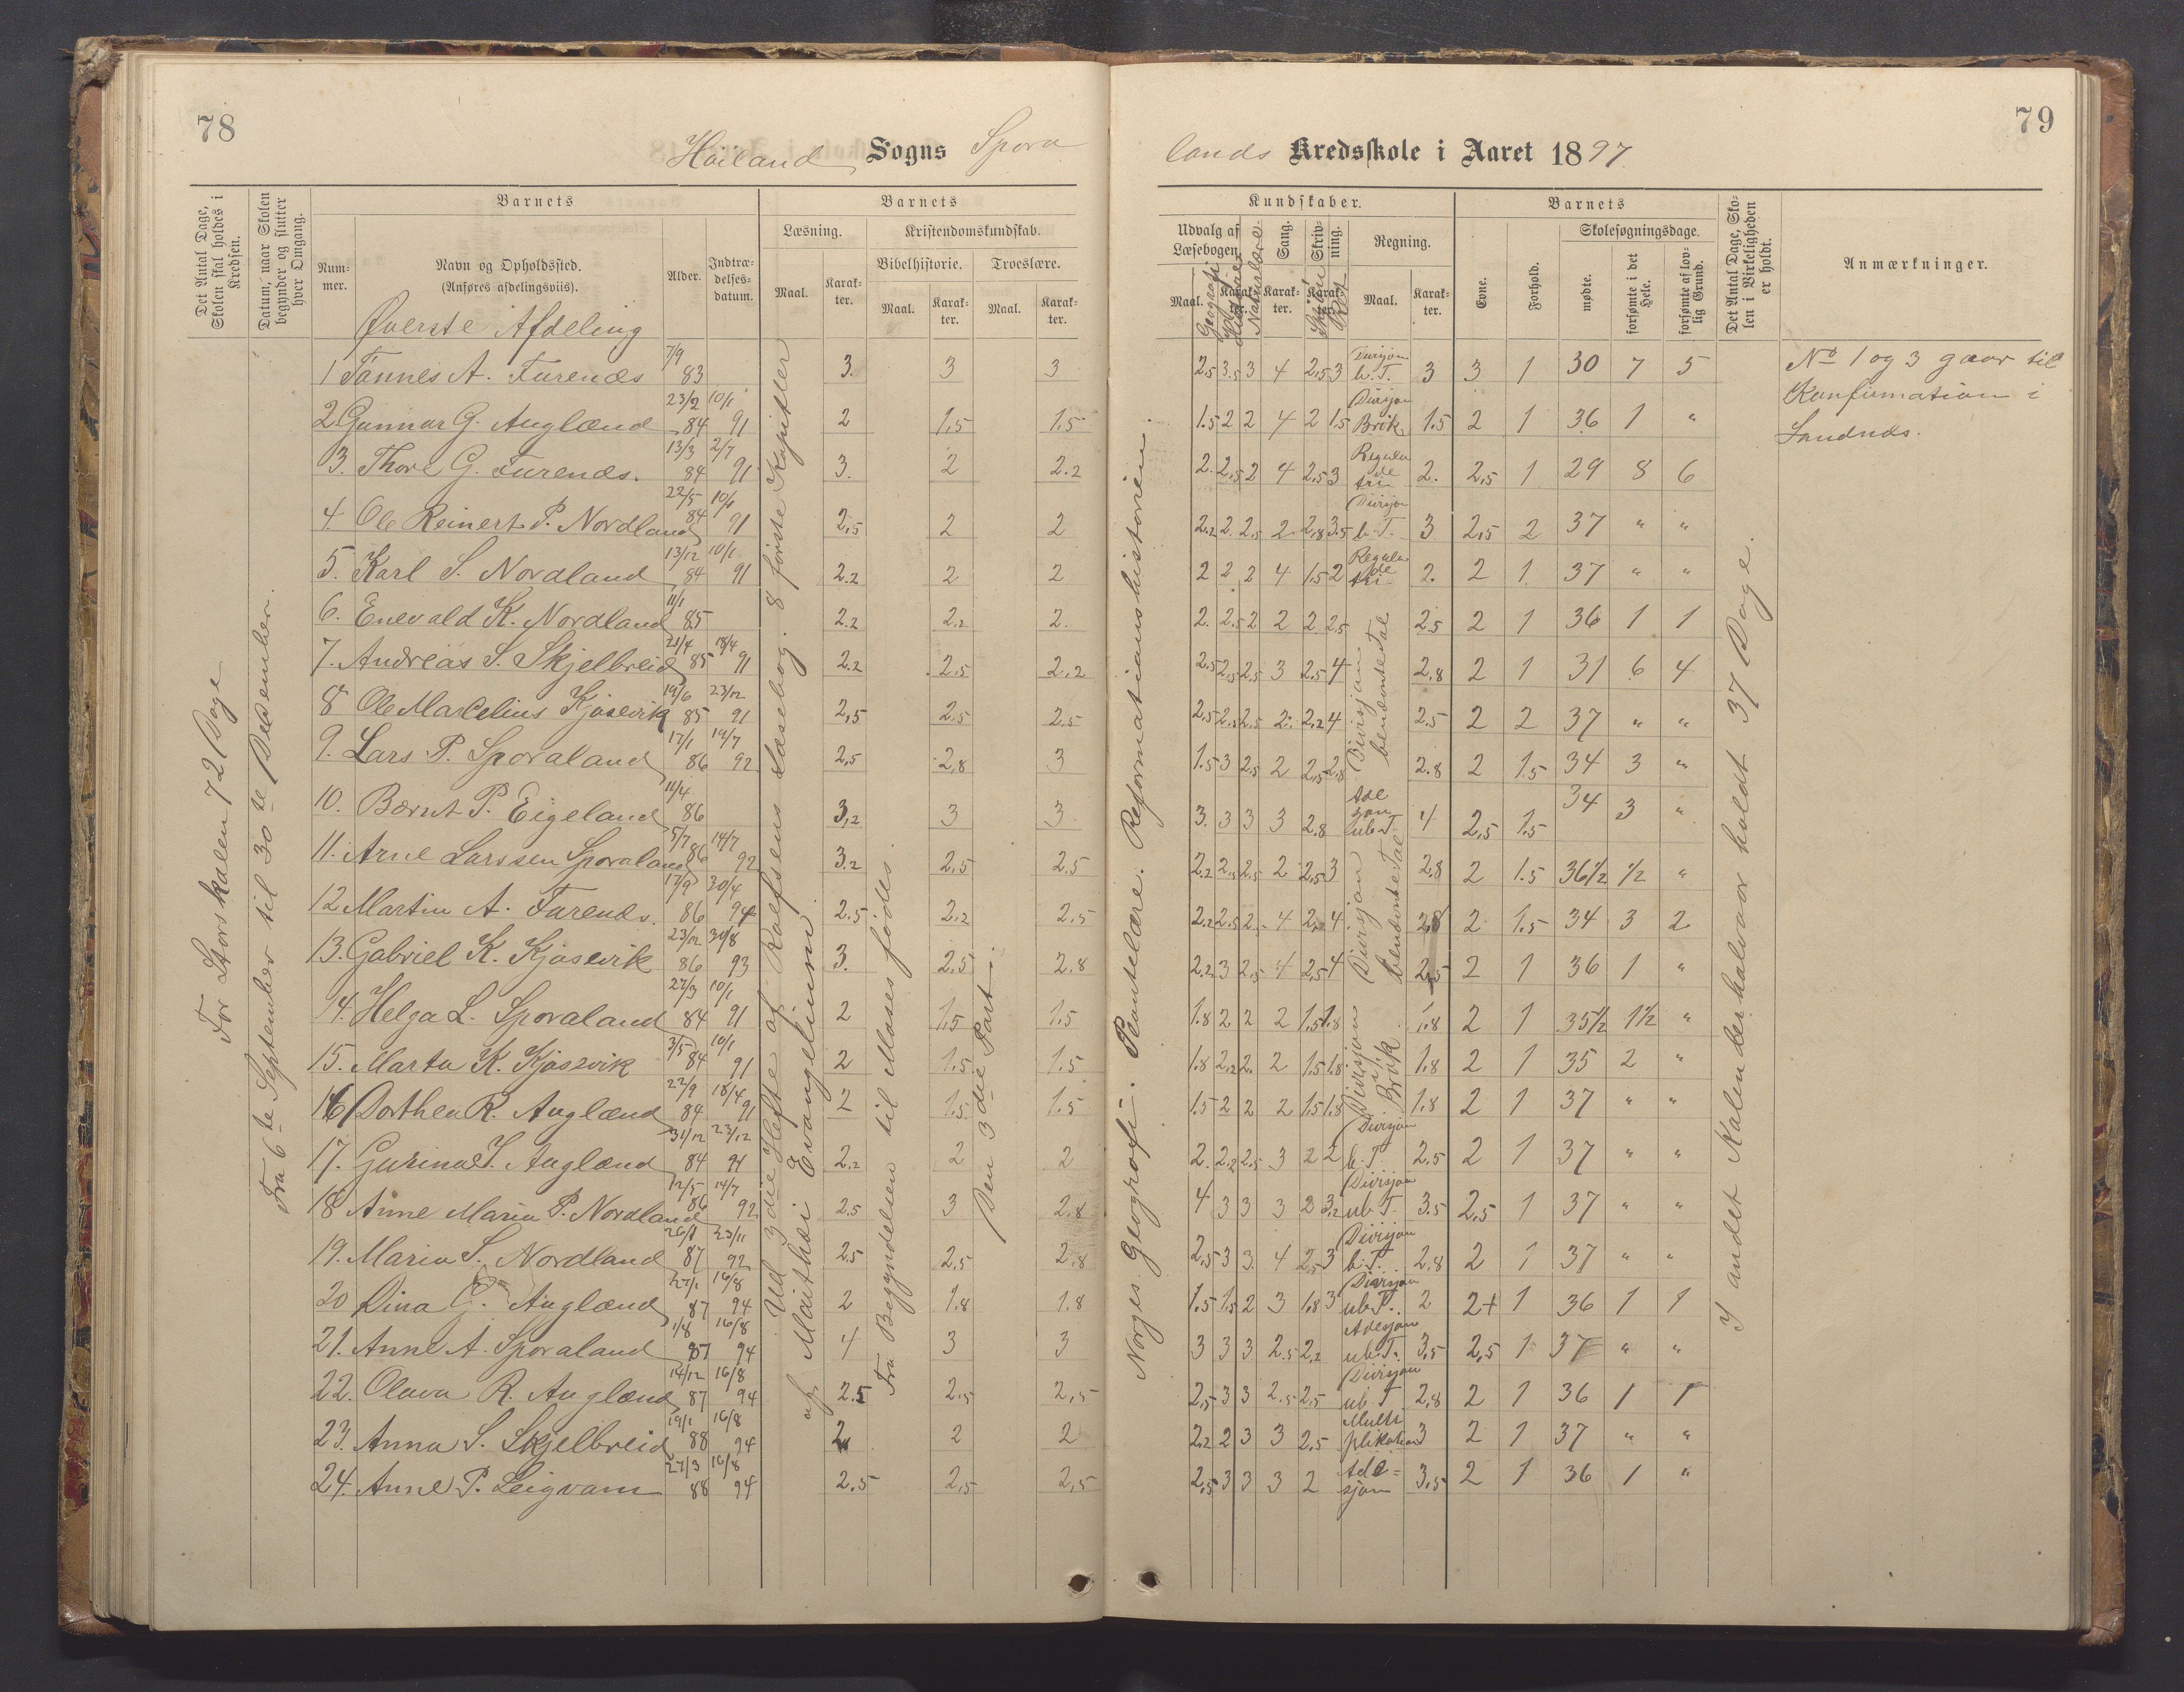 78
Høiland Sogns Spora
Det Antal Dage, Skolen skal holdes i Kredsen.
Datum, naar Skolen begynder og slutter hver Omgang.
Barnets
Num-
mer.
Navn og Opholdssted.
(Anføres afdelingsviis).
Alder.
Indtræ-
delses-
datum.
Barnets
Læsning.
Maal.
Karak-
ter.
Kristendomskundskab.
Bibelhistorie.
Troeslære.
Maal.
Karak-
ter.
Maal.
Karak-
ter.
For Storskolen 72 Dage
Fra 6te September til 30te Desember.
Ud 3die Hefte af Rolfsens Læsebog. 8 første Kapitler
af Matthæi Evangelium.
Fra Begyndelsen til Moses fødes.
Den 3die Part.
Øverste Afdeling
1 Tønnes A. Furenes 7/9 83 3. 3 3
2 Gunnar G. Auglænd 23/2 84 10/1 91 2 1,5 1.5
3. Thore G. Furenes. 13/3 84 2/7 91 3. 2 2.2
4. Ole Reinert P. Nordland 22/5 84 10/1 91 2,5 2 2
5. Karl S. Nordland 13/12 84 10/1 91 2.2 2 2
6. Enevald K. Nordland 11/1 85 2.2 2.2 2.
7. Andreas S. Skjelbreid 21/4 85 18/4 91 2.2 2,5 2,2
8 Ole Marcelius Kjosevik 19/6 85 23/12 91 2,5 2.5 2.5
9. Lars P. Sporaland 17/1 86 19/7 92 2,5 2,8 3
10. Bærnt P. Eigeland 11/4 86 3,2 3 3
11. Arne Larssen Sporaland 5/7 86 14/7 92 3.2 2,5 2.5
12 Martin A. Furenes. 17/9 86 30/4 94 2.5 2.2 2.5
13. Gabriel K. Kjosevik 23/12 86 30/8 93 3. 2.5 2.8
14. Helga L. Sporaland 27/3 84 10/1 91 2 1.5 1.5
15. Marta K. Kjosevik 3/5 84 10/1 91 2 1.5 1.5
16 Dorthea R. Auglænd 22/9 84 18/4 91 2 1.5 1.5
17. Gurina T. Auglænd 31/12 84 23/12 91 2.2 2 2
18 Anne Maria P. Nordland 12/5 86 14/7 92 2.5 3 2.8
19. Maria S. Nordland 26/1 87 23/11 92 2.5 2,5 2,8
20 Dina G. Auglænd 27/1 87 16/8 94 2 1.8 1.8
21. Anne A. Sporaland 1/8 87 16/8 94 4 3 3
22. Olava R. Auglænd 14/12 87 16/8 94 2.5 2,5 2,5
23. Anna S. Skjelbreid 19/1 88 16/8 94 2 2 2
24. Anne P. Leigvam 27/3 88 16/8 94 2.5 2,5 2,5
79
lands Kredsskole i Aaret 1897.
Kundskaber.
Udvalg af
Læsebogen.
Maal.
Geografi
Historie
Naturlære.
Karak-
ter.
Sang.
Karak-
ter.
Skriv-
ning.
Karak-
ter.
Regning.
Maal.
Karak-
ter.
Barnets
Evne.
Forhold.
Skolesøgningsdage.
mødte.
forsømte i det Hele.
forsømte af lov-
lig Grund.
Det Antal Dage, Sko-
len i Virkeligheden
er holdt.
Anmærkninger.
Norges Geografi. Plantelære. Reformationshistorien.
I andet Kalenderhalvaar holdt 37 Dage.
2.5 3.5 3 4 2,5 3 Divisjon b. T. 3 3 1 30 7 5 No 1 og 3 gaar til
1.5 2 2 4 2 1.5 Divisjon Brøk 1.5 2 1 36 1 " Konfirmation i
2. 2,5 2 4 2.5 3 Regula de tri 2. 2,5 1 29 8 6 Sandnes.
2.2 2. 2,5 2 2,8 3.5 Divisjon b. T. 3 2,5 2 37 " "
2 2 2 4 1.5 2 Regula de tri 2. 2 1 37 " "
2. 2.5 2 2 2 2,5 Divisjon benævnte Tal 2.5 2 1 36 1 1
2.5 2,5 2.5 3 2.5 4 2,8 2 1 31 6 4
2,5 2.5 2.5 2. 2.2 4 2.5 2 2 37 " "
1.5 3 2,5 2 2,5 2,8 2.8 2 1.5 34 3 "
3. 3 3 3 2.8 Adesjon ub. T 4 2,5 1.5 34 3 "
2.2 2.5 2.5 2 2,5 3 Divisjon benævnte Tal 2.8 2 1.5 36 1/2 1/2 "
2.2 2.5 2.5 4 2,2 4 2,8 2 1.5 34 3 2
2.2 3 2,5 4 2,5 4 2,5 2 1 36 1 "
1.8 2 2 2 1.5 1.8 Divisjon i Brøk 1.8 2 1 35 1/2 1 1/2 "
1.8 2,2 2. 2 1.5 1.8 1.8 2 1 35 2 "
1.5 2 2 2 1.5 1.8 1.8 2 1 37 " "
2. 2,2 2.5 3 2 2 Divisjon b. T. 2.5 2 1 37 " "
4 3 3 3 2 3,2 Divisjon ub. T. 3.5 2,5 1 37 " "
2,5 3 3 4 2,5 3 Divisjon b. T. 2,8 2 1 37 " "
1.5 1.5 2 3 1.8 3 Divisjon ub. T. 2 2+ 1 36 1 1
3 3 3 2.5 2,2 Adesjon ub. T. 3,5 2,5 1 37 " "
2,5 3 3 2.5 2,5 Divisjon ub. T 2,8 2 1 36 1 1
2.2 2 3 3 2,5 Multiplikation 3 2 1 37 " "
2,5 3 3 3 2 Ade=sjon 3,5 2 1 36 1 "